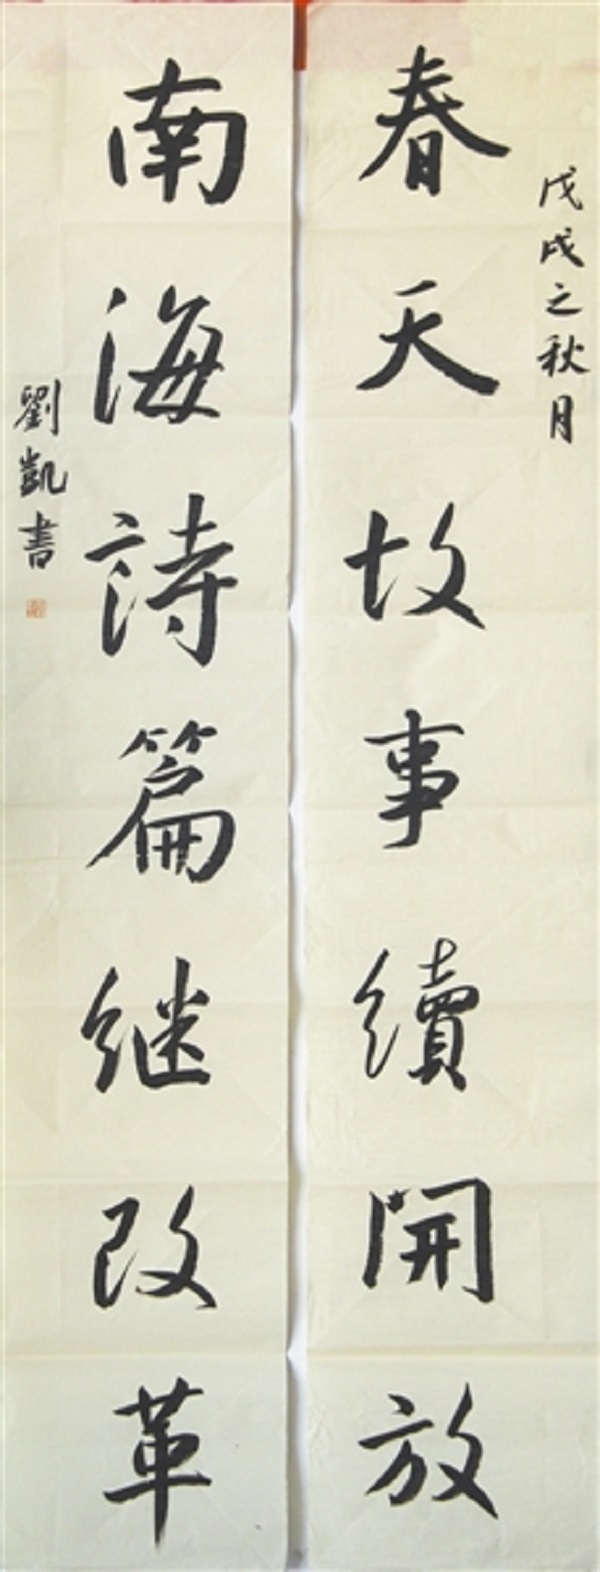 戊戌之秋月
春天故事續開放
南海詩篇继改革
劉凱書